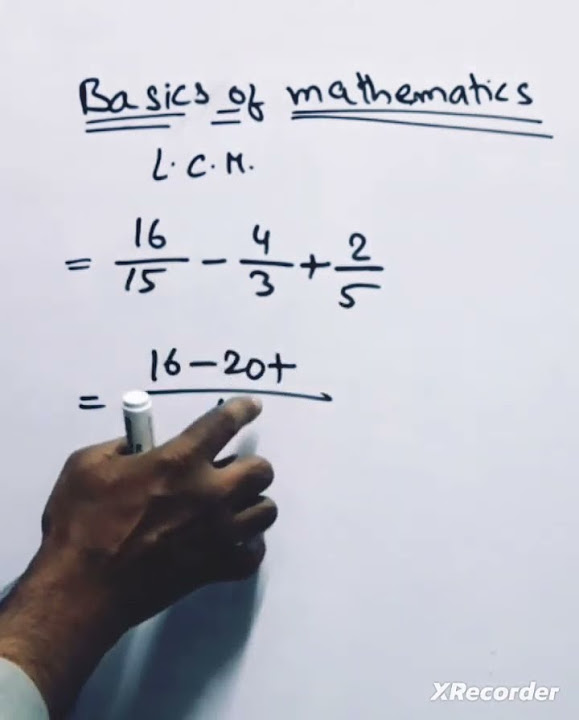 Basics of mathematics
L.C.M.
= 16/15 - 4/3 + 2/5
= 16-20+
XRecorder